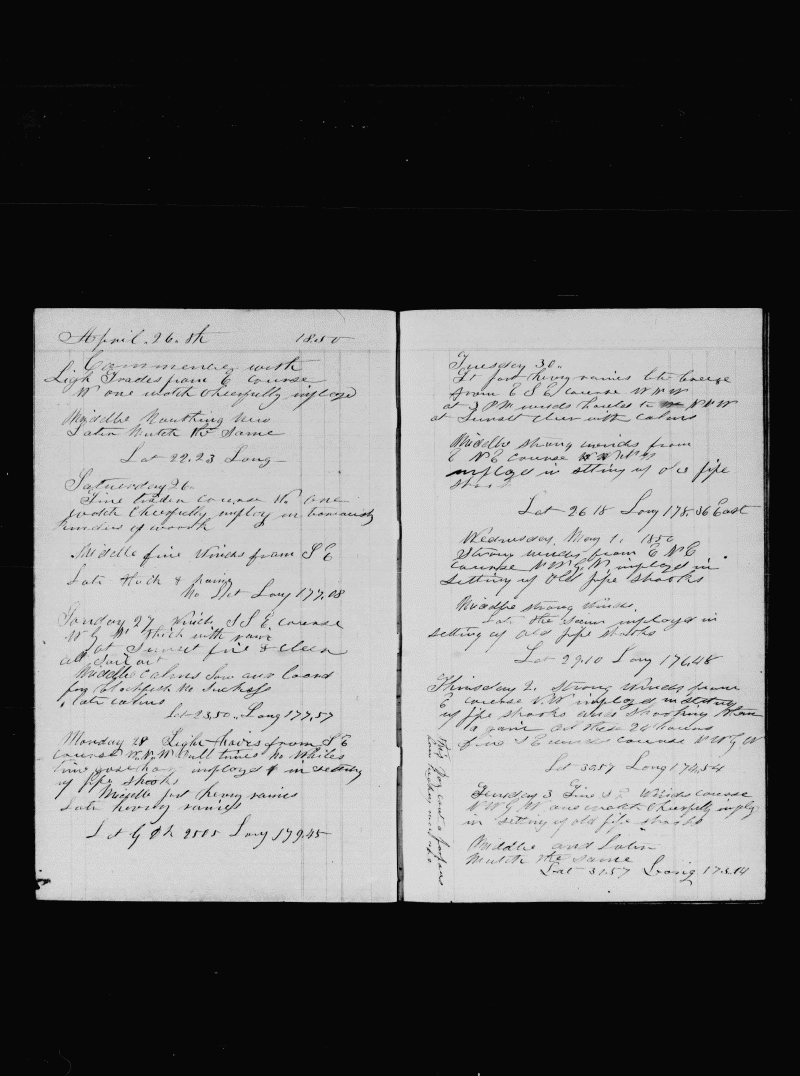 April. 26. th 1850
Commences with
Ligh Trades from E course
W one watch Cheerfully imployd
Middle Nourthing New
Later Mutch the Same
Lat 22.23 Long
Satuerday 26
Fine trades course W. one
watch Cheerfully imploy on
kindes of worsh
Middle fine Winds from S E
Late thick &
No Lat Long 177,08
Sonday 27 Winds S S E course
W thick with rain
at Sunset fine & clear
all Sail out
Middle Calms Saw and loard
for blackfish No Suckses
late calms
Lat 23,50. Long 177,57
Monday 28 Light from S E
course W.N.W dull times no Whales
imployd in setting
up pipe shooks
Middle fut hevey raines
Late hevey raines
Lat by Ob 2505 Long 179.45
Tuesday 30.
1st part hevey raines late breeze
from E S E course W N W
at 3 PM winds hauled to N N W
at Sunset clear with calms
Middle strong winds from
E N E course
imployd in setting up old pipe
shooks
Lat 26 18 Long 178.36 East
Wednesday, May 1, 1850
Strong winds from E N E
course N W by N imployd in
setting up old pipe shooks
Middle strong winds.
Late the same imployd in
setting up old pipe shooks
Lat 29.10 Long 176.48
Thirsday 2. strong Winds from
E course N.W imployd in setting
up pipe shooks and shooping them
again at these 24 hours
fine S E winds course N W by W
Lat 3057 Long 174.54
Fine S E Winds course
N W by W one watch Cheerfully imploy
in setting up old pipe shooks
Middle and Later
Mutch the same
Lat 31.57 Long 173.14